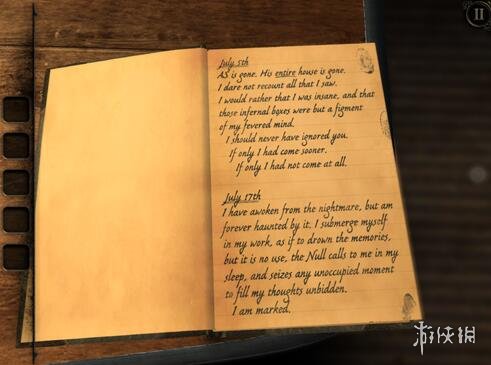 July 5th
AS is gone. His entire house is gone.
I dare not recount all that I saw.
I would rather that I was insane, and that
those infernal boxes were but a figment
of my fevered mind.
I should never have ignored you.
If only I had come sooner.
If only I had not come at all.
July 17th
I have awoken from the nightmare, but am
forever haunted by it. I submerge myself
in my work, as if to drown the memories,
but it is no use, the Null calls to me in my
sleep, and seizes any unoccupied moment
to fill my thoughts unbidden.
I am marked.
游侠网